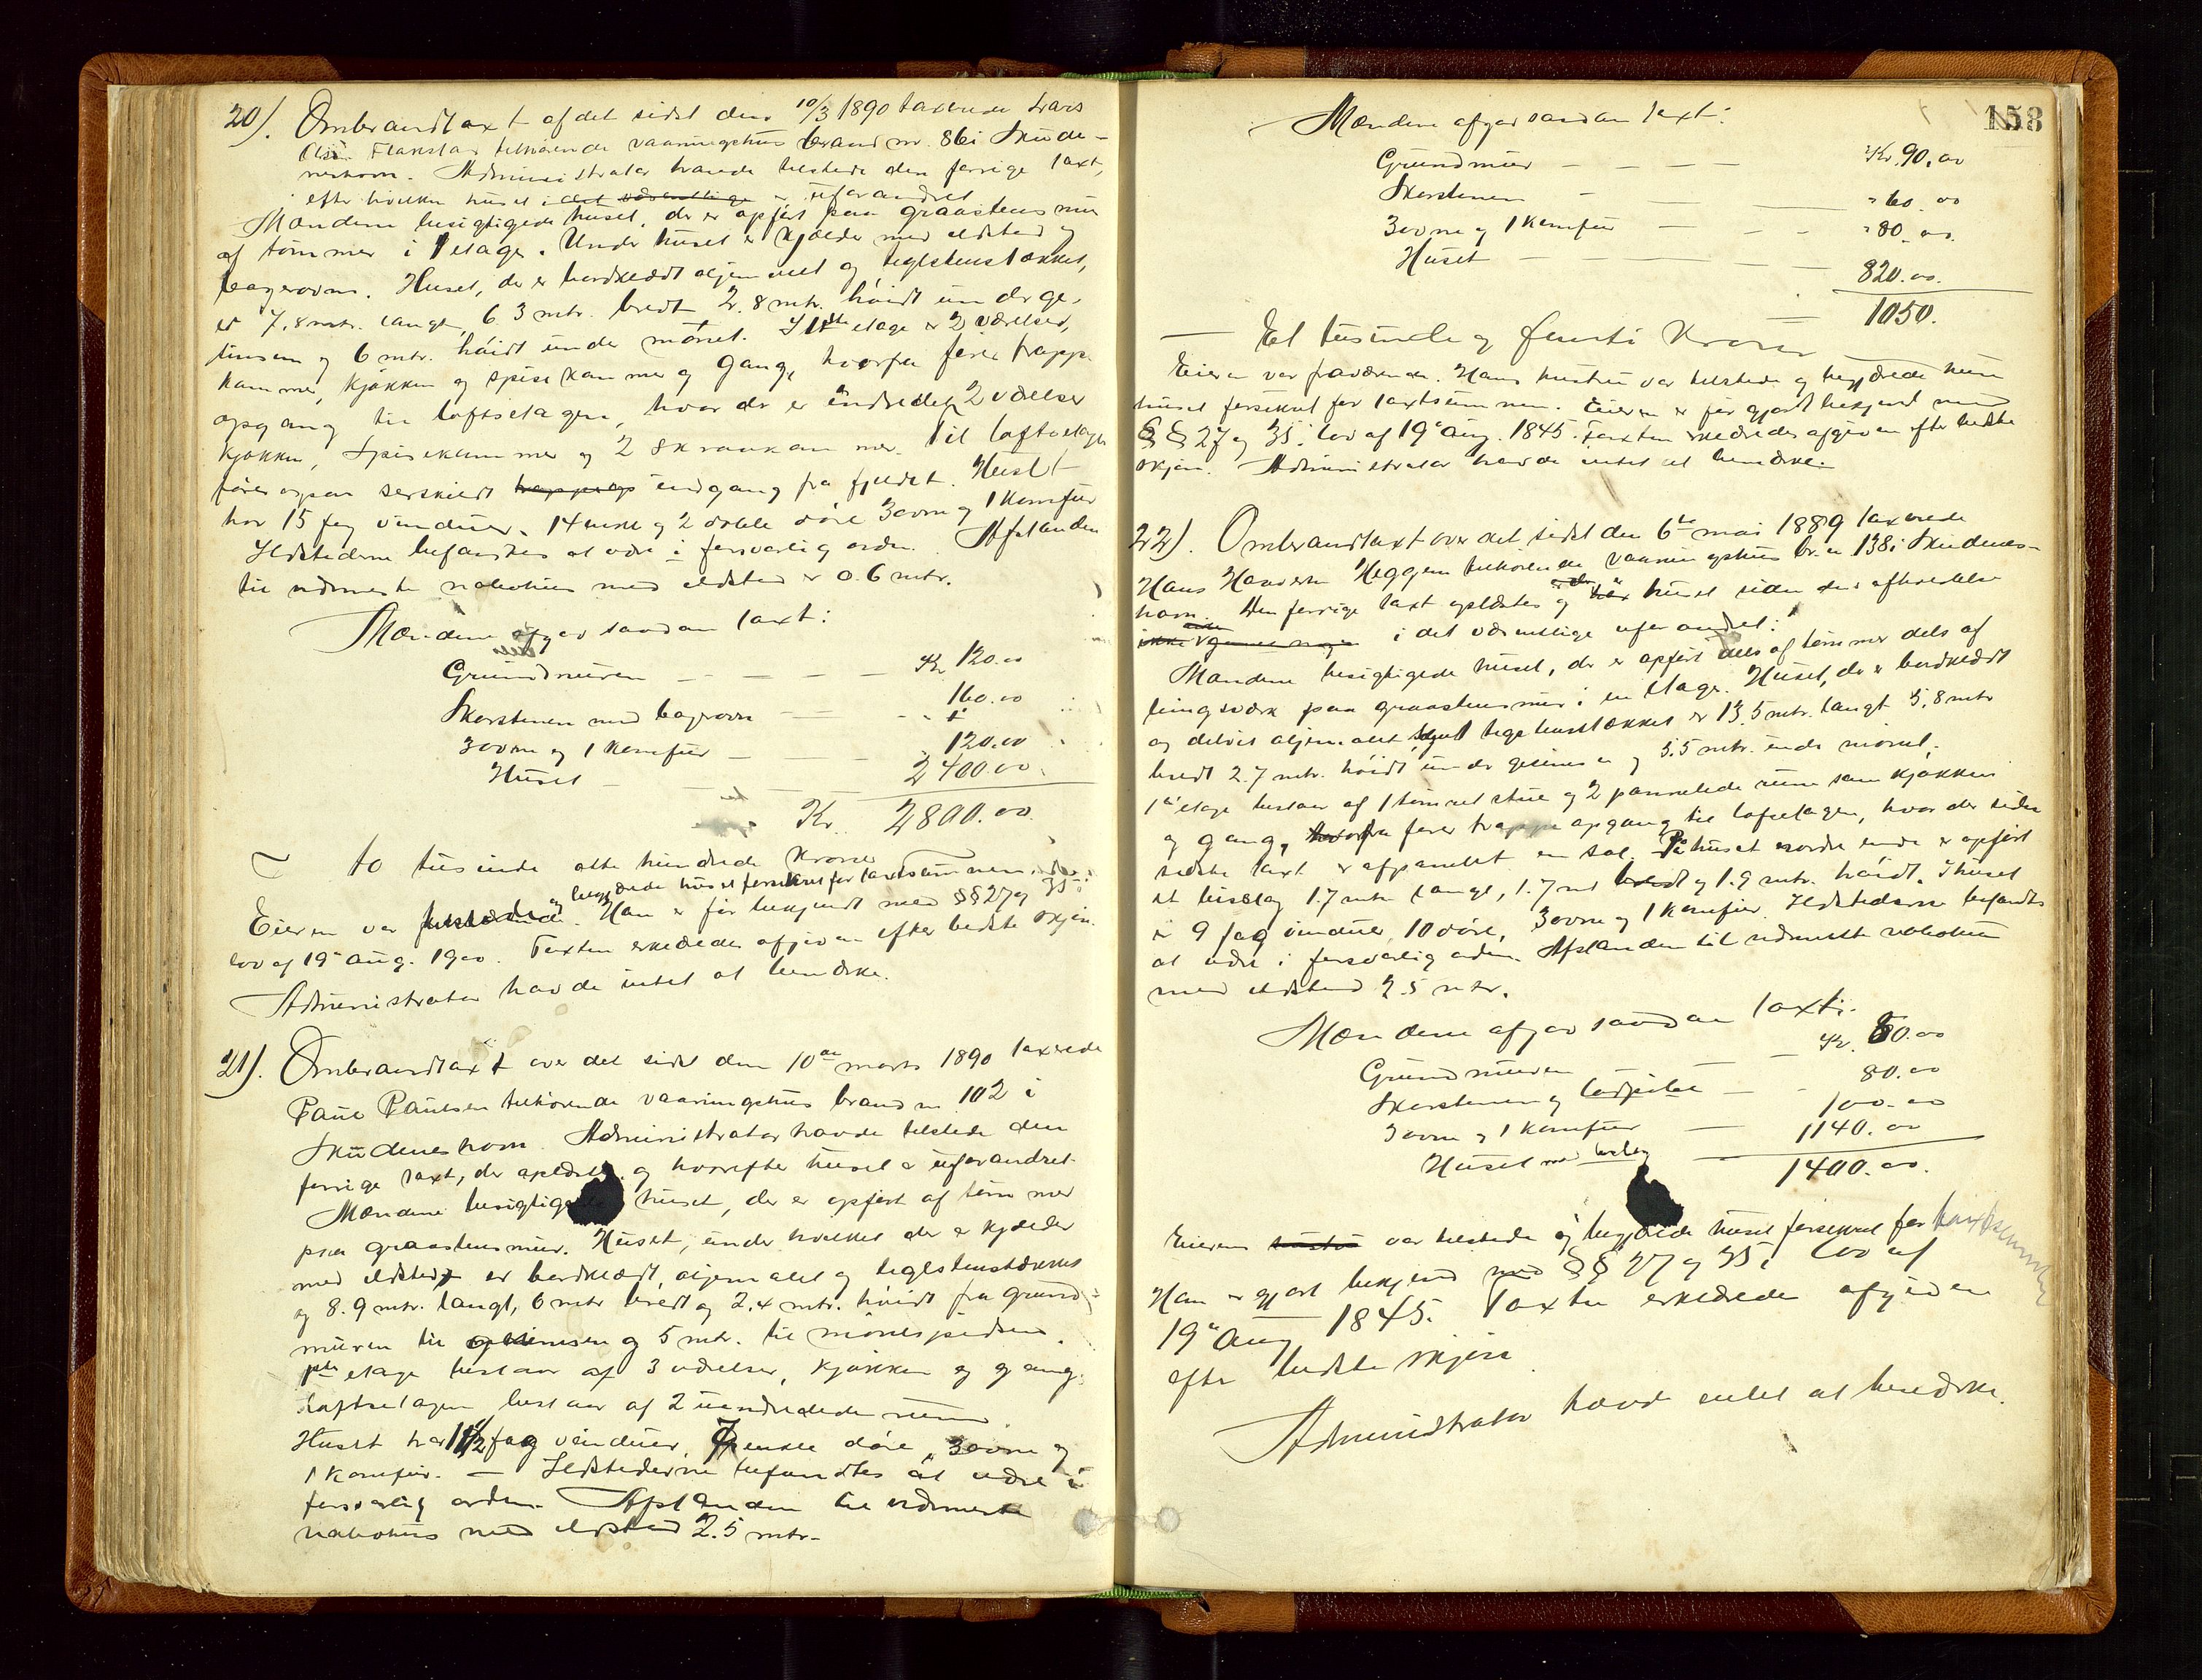 20). Ombrandtaxt af det sidst den 10/3 1890 taxerede Lars
Olsen Flakstad tilhørende vaaningshus brand nr. 86 i Skude-
neshavn. Administrator havde tilstede den forrige taxt,
efter hvilken huset i det væsentlige er uforandret
Mændene besigtigede huset, der er opført paa graastensmur
af tømmer i 1 etage. Under huset er kjælder med ildsted og
bagerovn. Huset, der er bordklædt oljemalet og teglstenstækket,
er 7,8 mtr. langt, 6.3 mtr. bredt 2.8 mtr. høidt under ge-
simsen og 6 mtr. høidt under mønet. I 1ste etage er 2 værelser,
kammer, kjøkken og spisekammer og gang, hvorfra fører trappe
opgang til loftsetagen, hvor der er indredet 2 værelser
kjøkken, spisekammer og 2 skraakammer. Til loftsetagen
fører ogsaa serskildt trappeop indgang fra fjeldet. Huset
har 15 fag vinduer, 14 enkle og 2 doble døre 3 ovne og 1 komfur
Ildstederne befandtes at være i forsvarlig orden. Afstanden
til nærmeste nabohus med ildsted er 0.6 mtr.
Mændene afgav saadan taxt:
Grundmuren Kr. 120.00
Skorstenen med bagerovn 160.00
3 ovne og 1 komfur 120.00
Huset 2400.00
Kr. 2800.00
to tusinde otte hundrede Kroner
og begjærede huset forsikret for taxtsummen
Eieren var tilstede. Han er før bekjendt med §§ 27 og 35 i
lov af 19 aug. 1900. Taxten erklæredes afgiven efter bedste skjøn.
Administrator havde intet at bemærke.
21). Ombrandtaxt over det sidst den 10de marts 1890 taxerede
Paul Paulsen tilhørende vaaningshus brand nr 102 i
Skudeneshavn. Administrator havde tilstede den
forrige taxt, der oplæstes og hvorefter huset er uforandret
Mændene besigtigede huset, der er opført af tømmer
paa graastensmur. Huset, under hvilket der er kjælder
med ildsted er bordklædt, oljemalet og teglstenstækket
og 8.9 mtr. langt, 6 mtr bredt og 2.4 mtr. høidt fra grund-
muren til gesimsen og 5 mtr. til mønespidsen.
1ste etage bestaar af 3 værelser, kjøkken og gang.
Loftsetagen bestaar af 2 uindredede rum.
Huset har 11 1/2 fag vinduer, 7 enkle døre, 3 ovne og
1 komfur. — Ildstederne befandtes at være i
forsvarlig orden. Afstanden til nærmeste
nabohus med ildsted 2.5 mtr.
158
Mændene afgav saadan taxt:
Grundmur Kr. 90.00
Skorstenen " 60.00
3 ovne og 1 komfur " 80.00
Huset 820.00
1050.
Et tusinde og femti Kroner
Eieren var fraværende. Hans hustru var tilstede og begjærede hun
huset forsikret for taxtsummen. Eieren er før gjort bekjendt med
§§ 27 og 35 i lov af 19 aug. 1845. Taxten erklæredes afgiven efter bedste
skjøn. Administrator havde intet at bemærke.
22). Ombrandtaxt over det sidst den 6te mai 1889 taxerede
Hans Hansen Heggem tilhørende vaaningshus br.nr 138 i Skudenes-
havn. Den forrige taxt oplæstes og har huset siden dens afholdelse
ikke i det væsentlige uforandret.
Mændene besigtigede huset, der er opført dels af tømmer dels af
bingsverk paa graastensmur i en etage. Huset, der er bordklædt
og delvis oljemalet, samt teglstenstækket er 13.5 mtr. langt 5.8 mtr
bredt 2.7 mtr. høidt under gesimsen og 5.5 mtr. under mønet.
1ste etage bestaar af 1 tømret stue og 2 pannelede rum samt kjøkken
og gang, hvorfra fører trappeopgang til loftsetagen, hvor der siden
sidste taxt er afpanelet en sal. Paa huset nordre ende er opført
et bislag 1.7 mtr langt, 1.7 mtr bredt og 1.9 mtr. høidt. I huset
er 9 fag vinduer, 10 døre, 3 ovne og 1 komfur. Ildstederne befandtes
at være i forsvarlig orden. Afstanden til nærmeste nabohus
med ildsted 2.5 mtr.
Mændene afgav saadan taxt:
Grundmuren Kr. 80.00
Skorstenen og 80.00
3 ovne og 1 komfur 100.00
Huset med bislag 1140.00
1400.00.
Eieren hustru var tilstede og begjærede huset forsikret for taxtsummen
Han er gjort bekjendt med §§ 27 og 35 i lov af
19 aug 1845. Taxten erklærede afgiven
efter bedste skjøn
Administrator havde intet at bemærke.